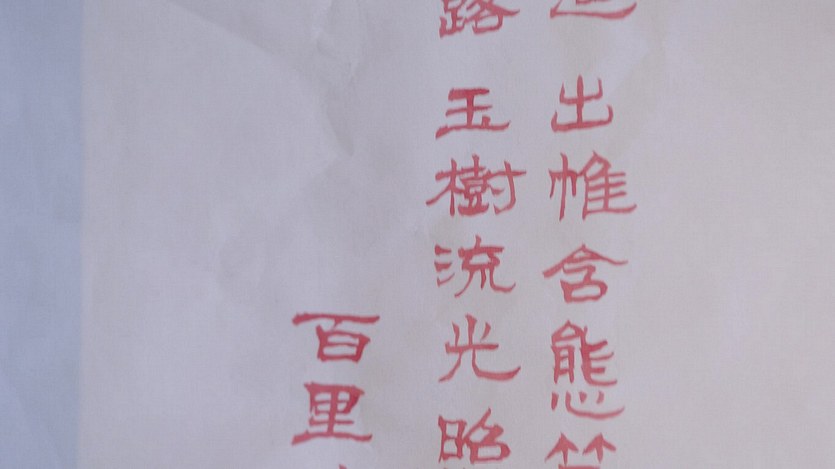 出帷含態
玉樹流光照
百里